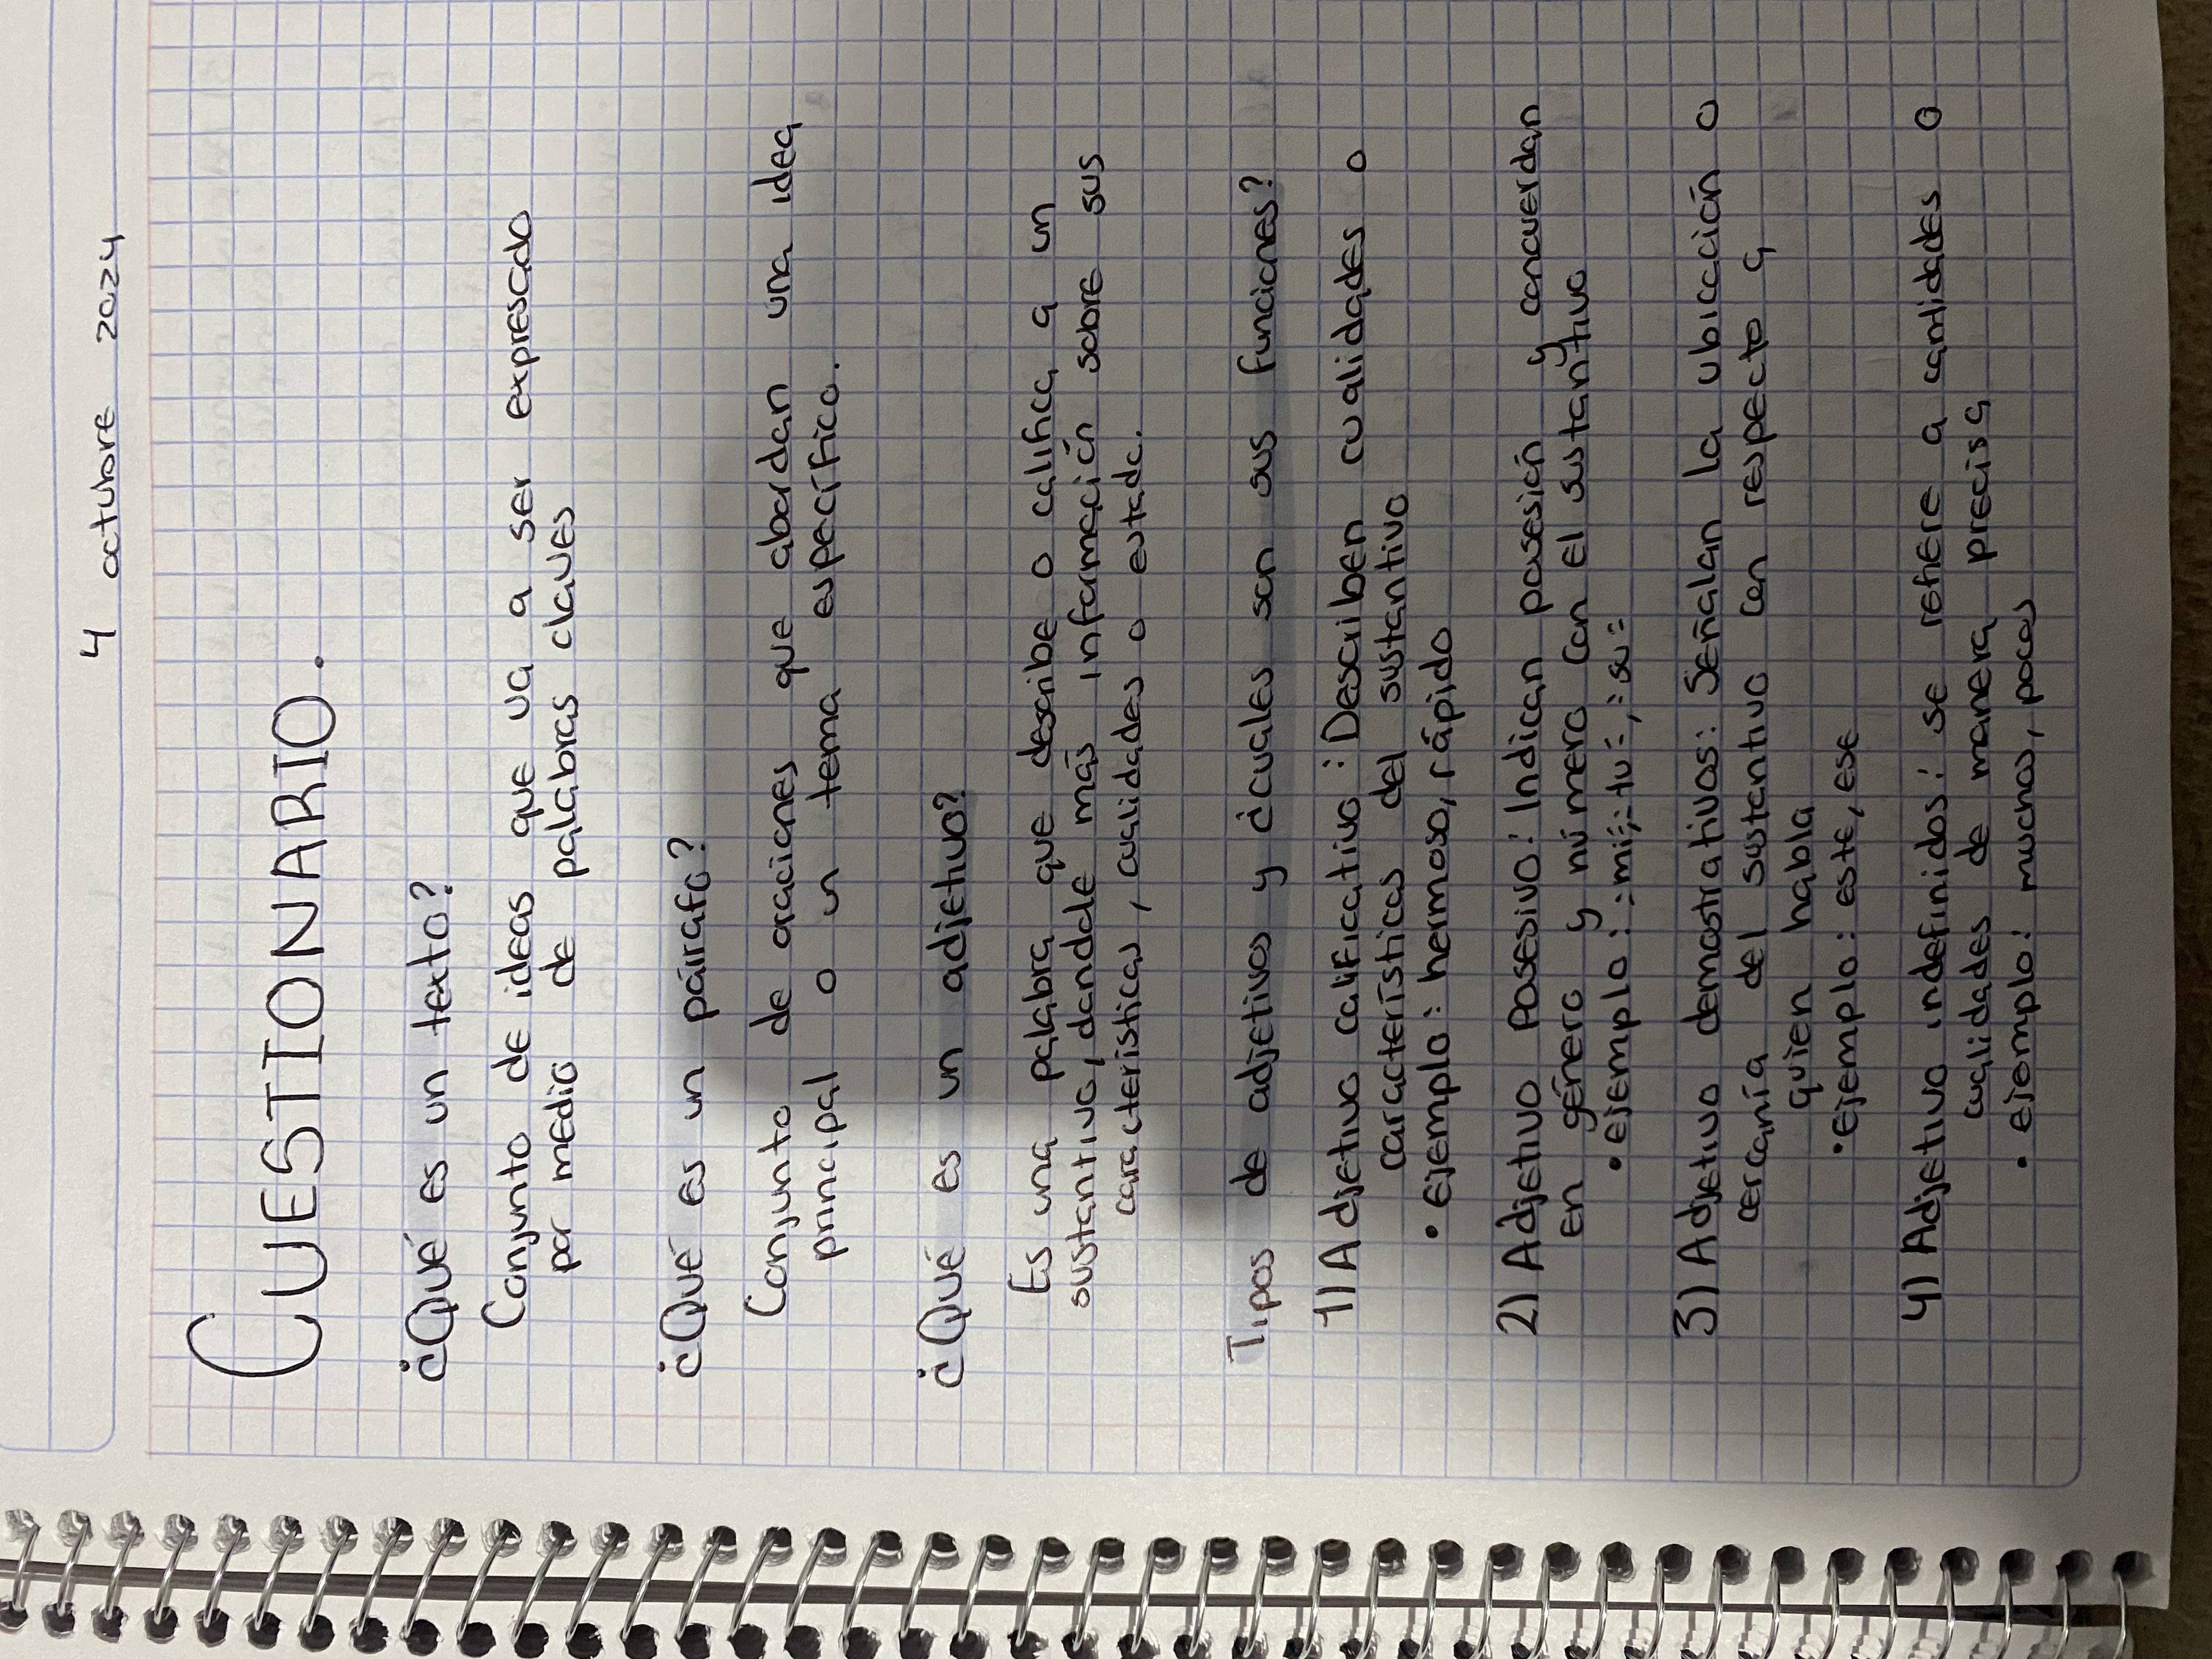 4 octubre 2024
CUESTIONARIO.
¿Qué es un texto?
Conjunto de ideas que va a ser expresado
por medio de palabras claves
¿Qué es un párrafo?
Conjunto de oraciones que abordan una idea
principal o un tema específico.
¿Qué es un adjetivo?
Es una palabra que describe o califica a un
sustantivo, dandole más información sobre sus
características, cualidades o estado.
Tipos de adjetivos y ¿cuales son sus funciones?
1) Adjetivo calificativo: Describen cualidades o
características del sustantivo
• Ejemplo: hermoso, rápido
2) Adjetivo Posesivo: Indican posesión y concuerdan
en género y número con el sustantivo
• Ejemplo: -mi-, -tu-, -su-
3) Adjetivo demostrativos: Señalan la ubicación o
cercanía del sustantivo con respecto a
quien habla
• Ejemplo: este, ese
4) Adjetivo indefinidos: se refiere a cantidades o
cualidades de manera precisa
• Ejemplo: muchos, pocos